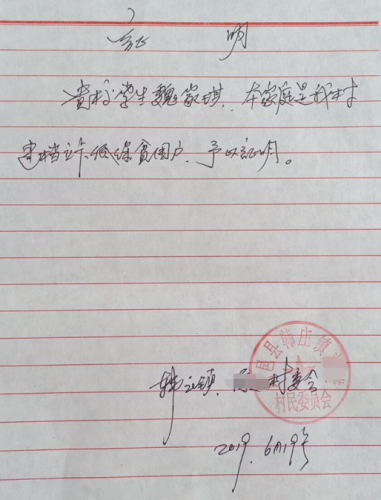 证 明
贵校学生魏家琪,本家庭是我村
建档立卡低保贫困户,予以证明。
韩庄镇 村委会
息县韩庄镇
村民委员会
2019.6月19号